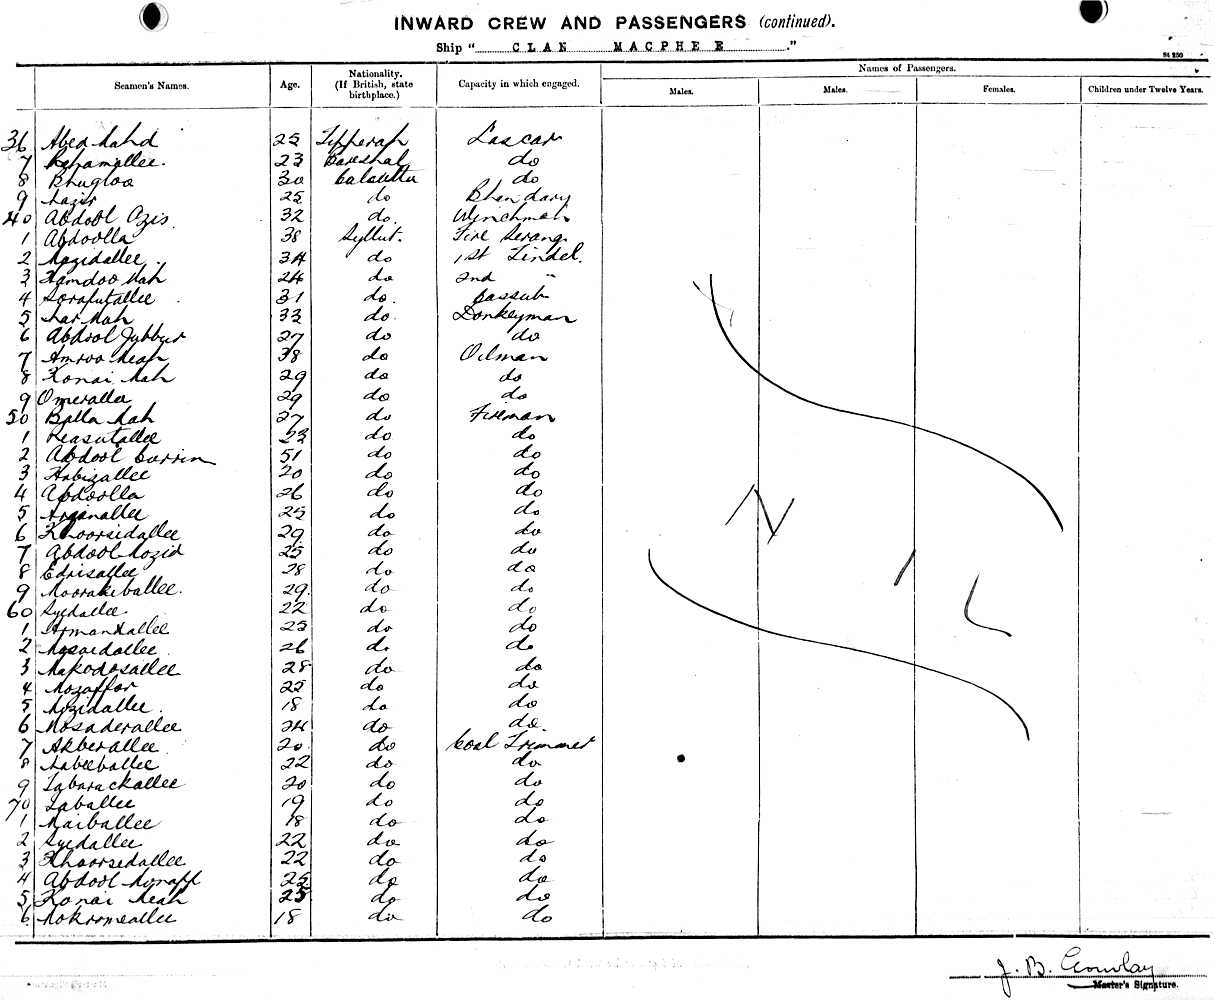 INWARD CREW AND PASSENGERS (continued).
Ship "CLAN MACPHEE."
Seamen's Names. Age. Nationality. (If British, state birthplace.) Capacity in which engaged. Names of Passengers.
Males. Males. Females. Children under Twelve Years.
36 25 Tipperah Lascar
7 23 do
8 Bhugloo 30 Calcutta do
9 25 do Bhendary
40 Abdool Ozis 32 do Winchman
1 Abdoolla 38 Syllut. Fire Serang
2 34 do 1st Tindel.
3 24 do 2nd "
4 Sorafutallee 31 do. Cassub
5 33 do Donkeyman
6 Abdool Jubbur 27 do do
7 38 do Oilman
8 Konai 29 do do
9 Omeralla 29 do do
50 Balla 27 do Fireman
1 23 do do
2 Abdool 51 do do
3 Habizallee 20 do do
4 Abdoolla 26 do do
5 25 do do
6 Khoorsidallee 29 do do
7 Abdool Mozid 25 do do
8 Edrisallee 28 do do
9 Moorakiballee 29. do do
60 Syedallee 22 do do
1 25 do do
2 26 do do
3 Makodosallee 28 do do
4 Mozaffor 25 do do
5 Mozidallee 18 do do
6 Mosaderallee 24 do do
7 Akberallee 20 do Coal Trimmer
8 22 do do
9 Tabarackallee 20 do do
70 19 do do
1 18 do do
2 Syedallee 22 do do
3 Khoorsedallee 22 do do
4 Abdool 25 do do
5 Konai Meah 25 do do
6 Mokroomeallee 18 do do
NIL
J. B. Gourlay
Master's Signature.